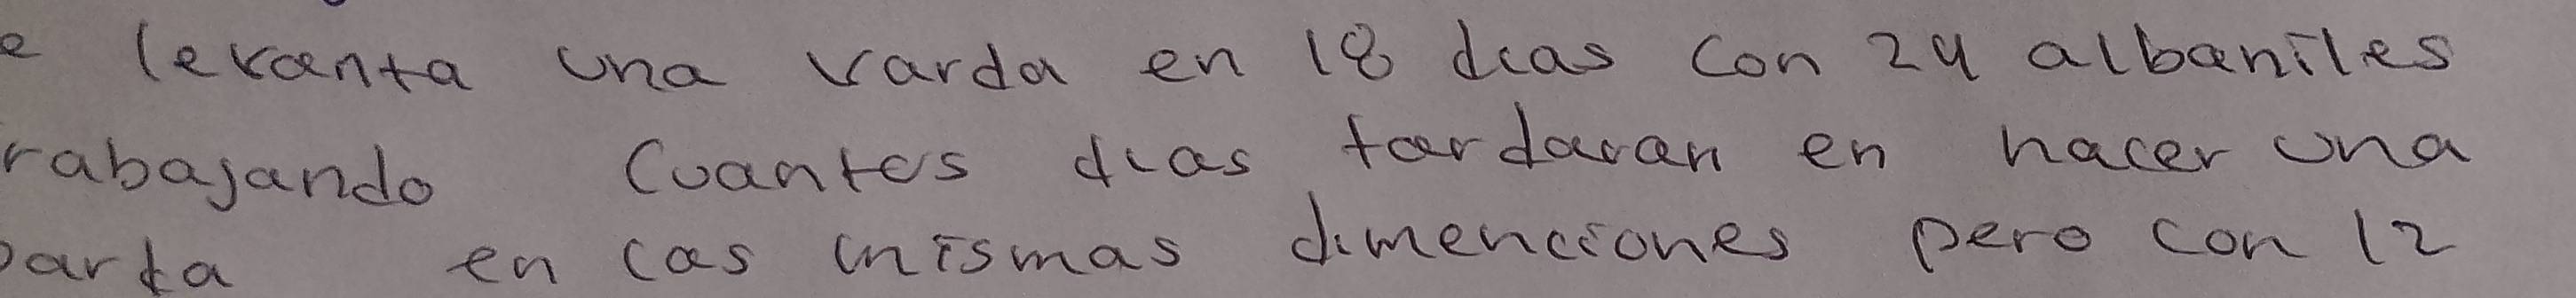 e levanta una varda en 18 dias con 24 albaniles
rabajando Cuantos dias tardaran en hacer una
barda en las mismas dimenciones pero con 12